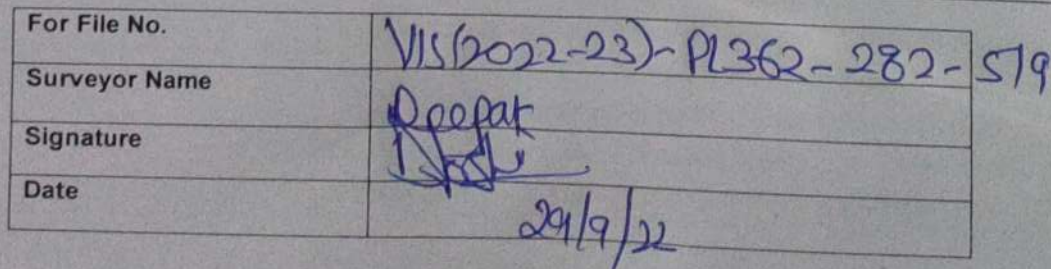 For File No. VIS(2022-23)-PL362-282-519
Surveyor Name Deepak
Signature
Date 29/9/22